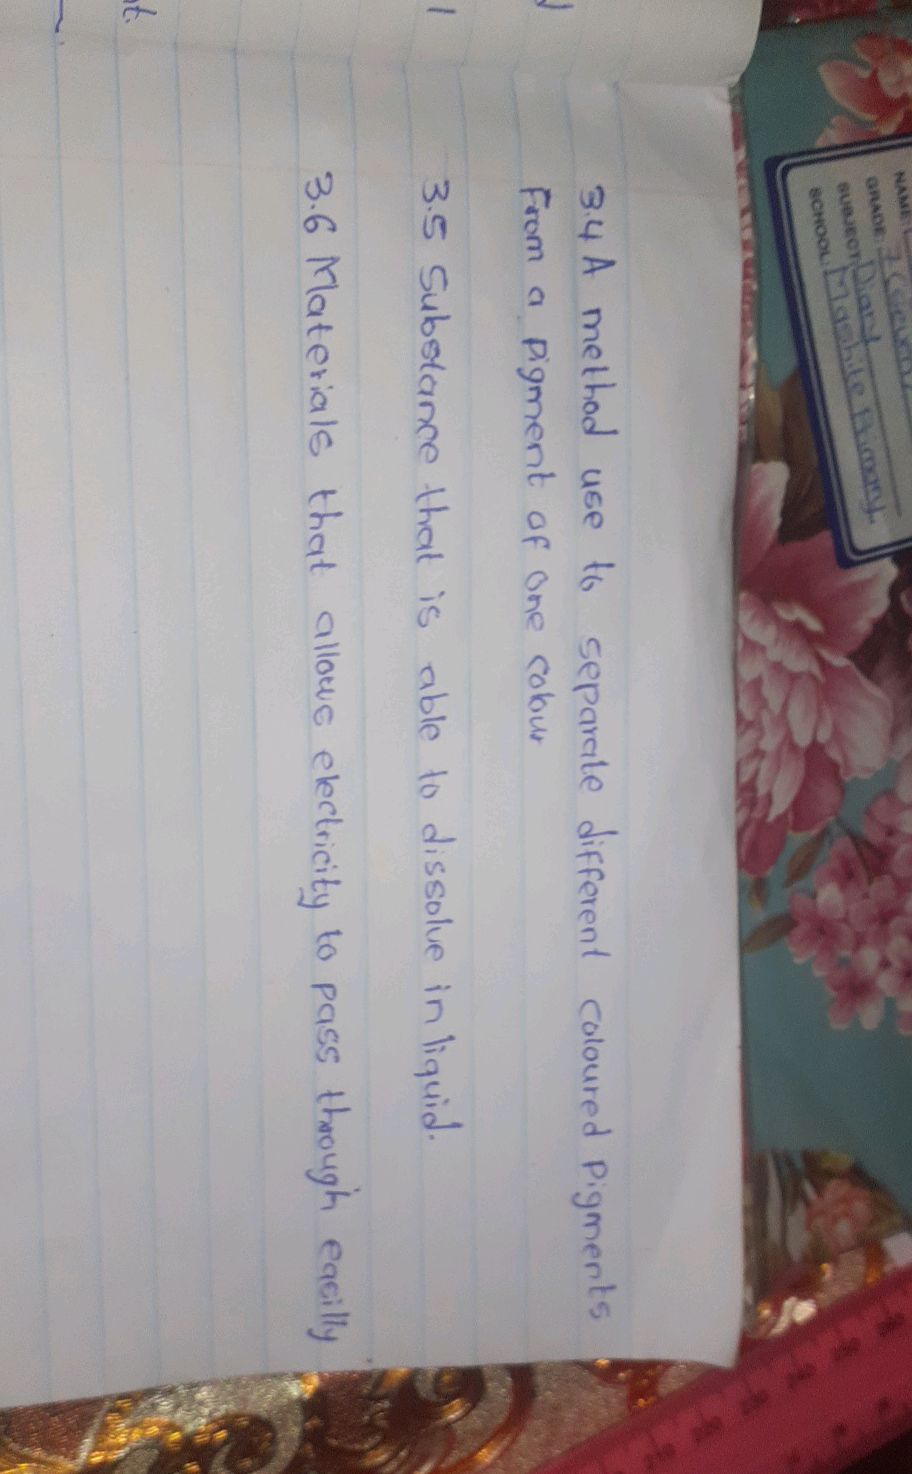 3.4 A method use to separate different coloured pigments
from a pigment of one colour
3.5 Substance that is able to dissolve in liquid.
3.6 Materials that allows electricity to pass through easilly
NAME:
GRADE: 7
SUBJECT: Diary
SCHOOL: Mashile Primary.